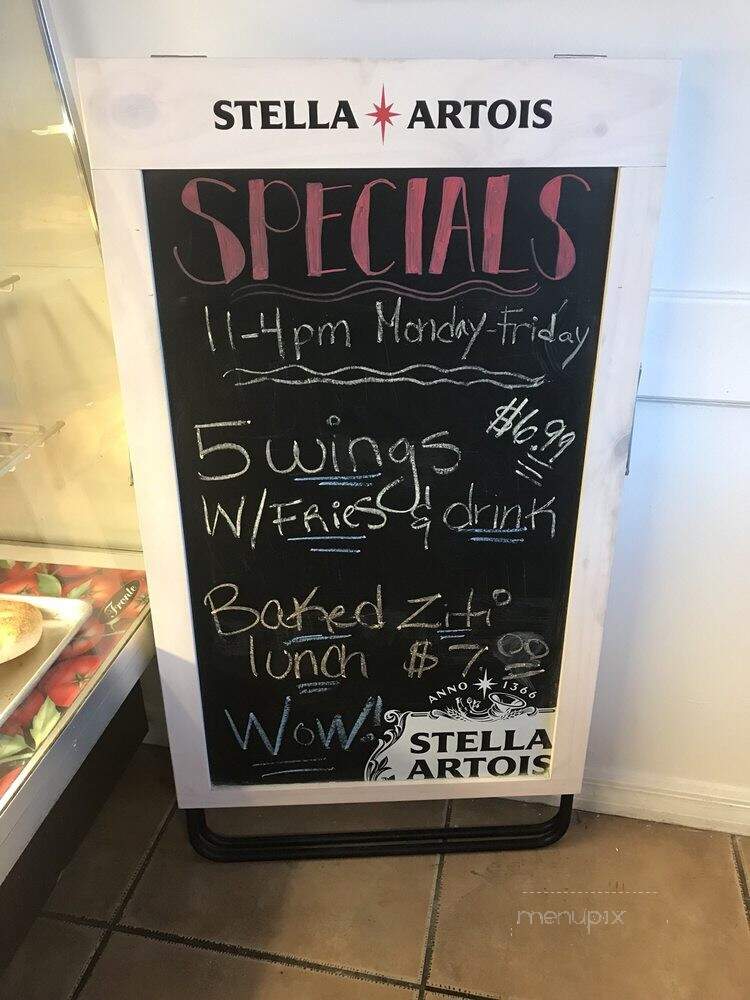 STELLA ARTOIS
SPECIALS
11-4pm Monday-Friday
5 wings $6.99
W/FRies & drink
Baked Ziti
lunch $7 00
WoW!
ANNO 1366
STELLA
ARTOIS
Fronte
menupix